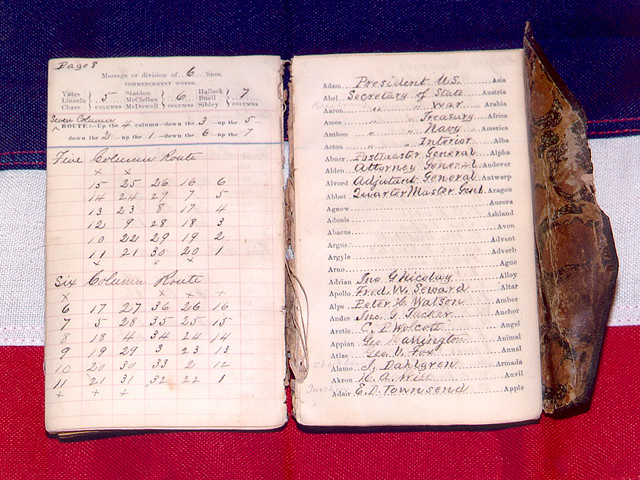 Page 8
Message or division of 6 lines.
COMMENCEMENT WORDS.
Yates Lincoln Chase } 5 COLUMNS Stanton McClellan McDowell } 6 COLUMNS Halleck Buell Sibley } 7 COLUMNS
Seven Column
ROUTE:—Up the 4 column—down the 3—up the 5—
down the 2—up the 1—down the 6—up the 7
Five Column Route
x x
15 25 26 16 6
14 24 27 7 5
13 23 8 17 4
12 9 28 18 3
10 22 29 19 2
11 21 30 20 1
x x x
Six Column Route
x x x x
6 17 27 36 26 16
7 5 28 35 25 15
8 18 4 34 24 14
9 19 29 3 23 13
10 20 30 33 2 12
11 21 31 32 22 1
+ + +
Adam President U.S. Asia
Abel Secretary of State Austria
Aaron " " War Arabia
Amos " " Treasury Africa
Anthon " " Navy America
Acton " " Interior Alba
Abner Postmaster General Alpha
Alden Attorney General Andover
Alvord Adjutant General Antwerp
Abbot Quarter Master Genl Aragon
Agnew Aurora
Adonis Ashland
Abacus Avon
Argus Advent
Argyle Adverb
Arno Ague
Adrian Jno G Nicolay Alloy
Apollo Fred W. Seward Altar
Alps Peter H. Watson Amber
Andes Jno. G. Tucker Anchor
Arctic C. P. Wolcott Angel
Appian Geo Harrington Animal
Atlas Geo. V. Fox Annal
Alamo J. Dahlgren Armada
Akron H. A. Wise Anvil
Adair E. D. Townsend Apple